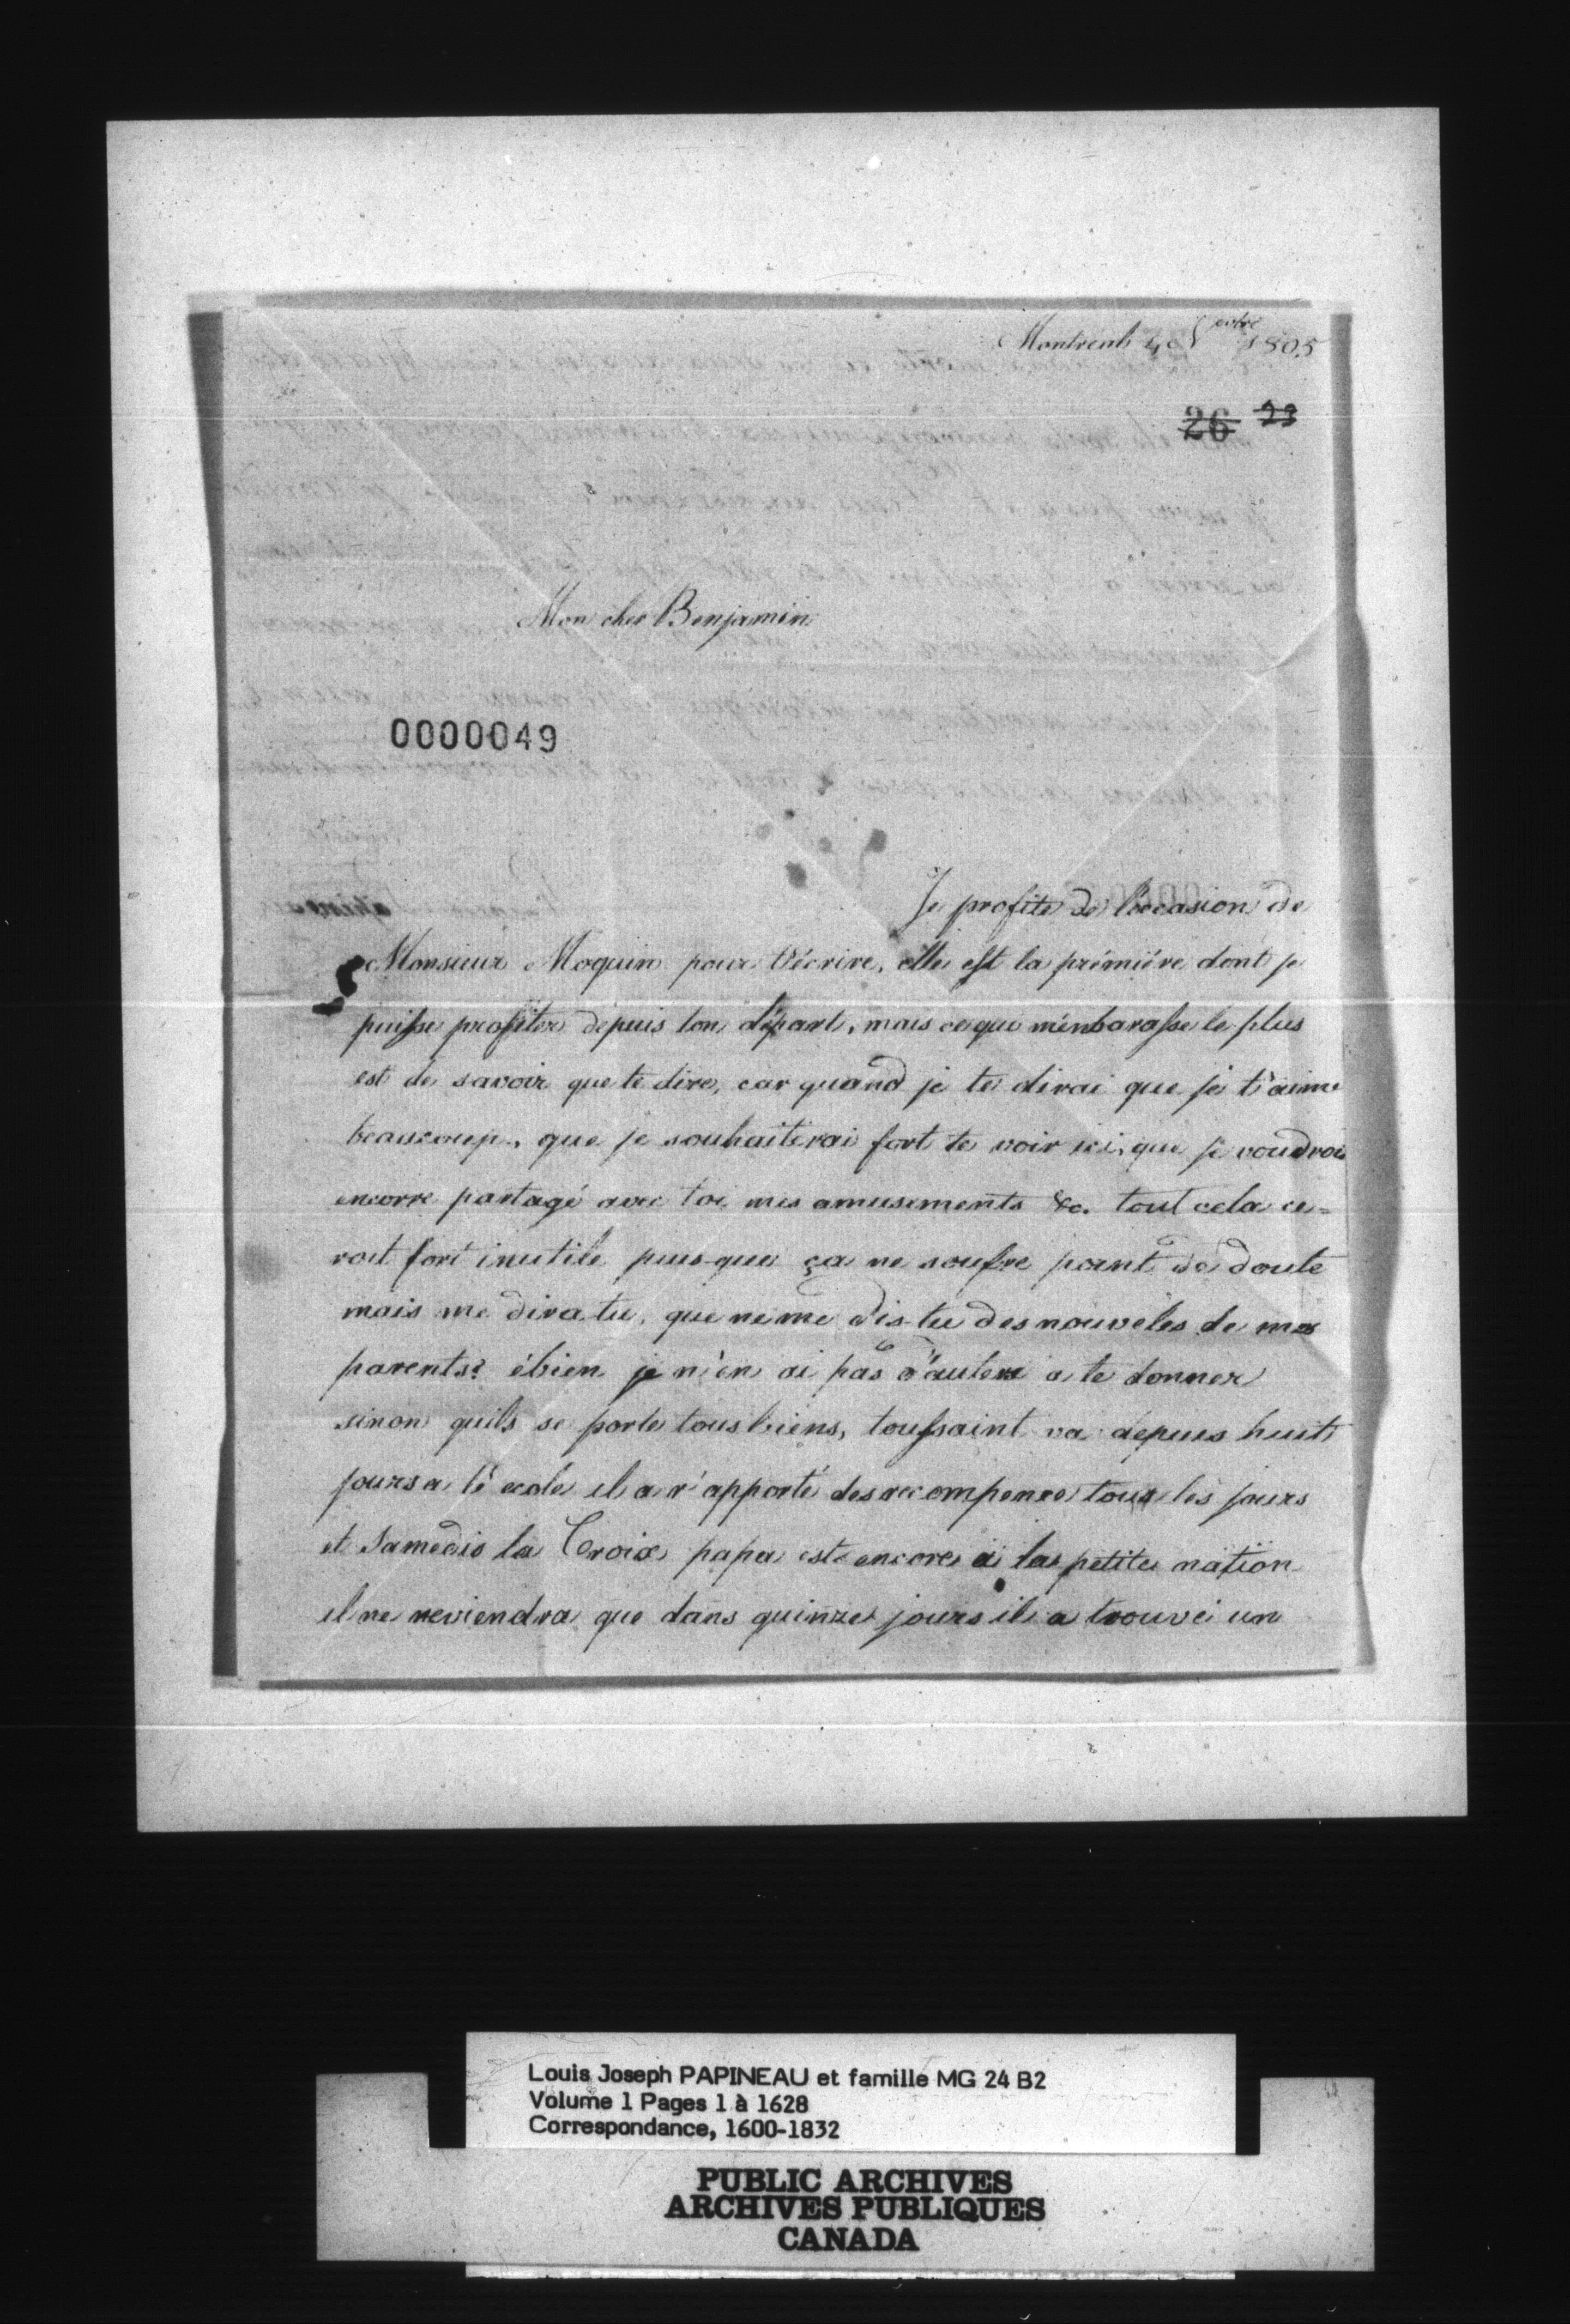 Montreal 4 Novbre 1805
26 23
Mon cher Benjamin
0000049
Je profite de l'occasion de
Monsieur Moquin pour t'écrire, elle est la prémiére dont je
puisse profiter depuis ton départ, mais ce qui m'enbarasse le plus
est de savoir que te dire, car quand je te dirai que je t'aime
beaucoup, que je souhaiterai fort te voir ici, que je voudrois
encorre partagé avec toi mes amusements &c. tout cela ce=
roit fort inutile puis-que ça ne soufre point de doute
mais me dira tu, que ne me dis-tu des nouvéles de mes
parents? ébien je n'en ai pas d'autere a te donner
sinon quils se porte tous biens, toussaint va depuis huit
jours a lé cole il a r'apporté des recompense tous les jours
et Samedis la Croix papa est encore à la petite nation
il ne reviendra que dans quinze jours il a trouvé un
Louis Joseph PAPINEAU et famille MG 24 B2
Volume 1 Pages 1 à 1628
Correspondance, 1600-1832
PUBLIC ARCHIVES
ARCHIVES PUBLIQUES
CANADA